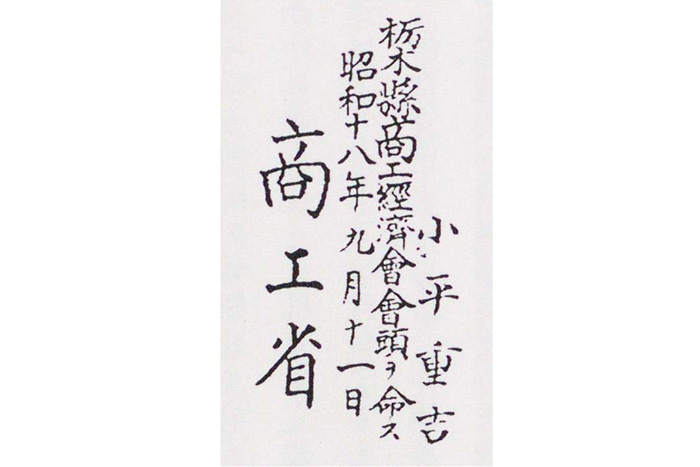 小平重吉
栃木縣商工經濟會會頭ヲ命ス
昭和十八年九月十一日
商工省